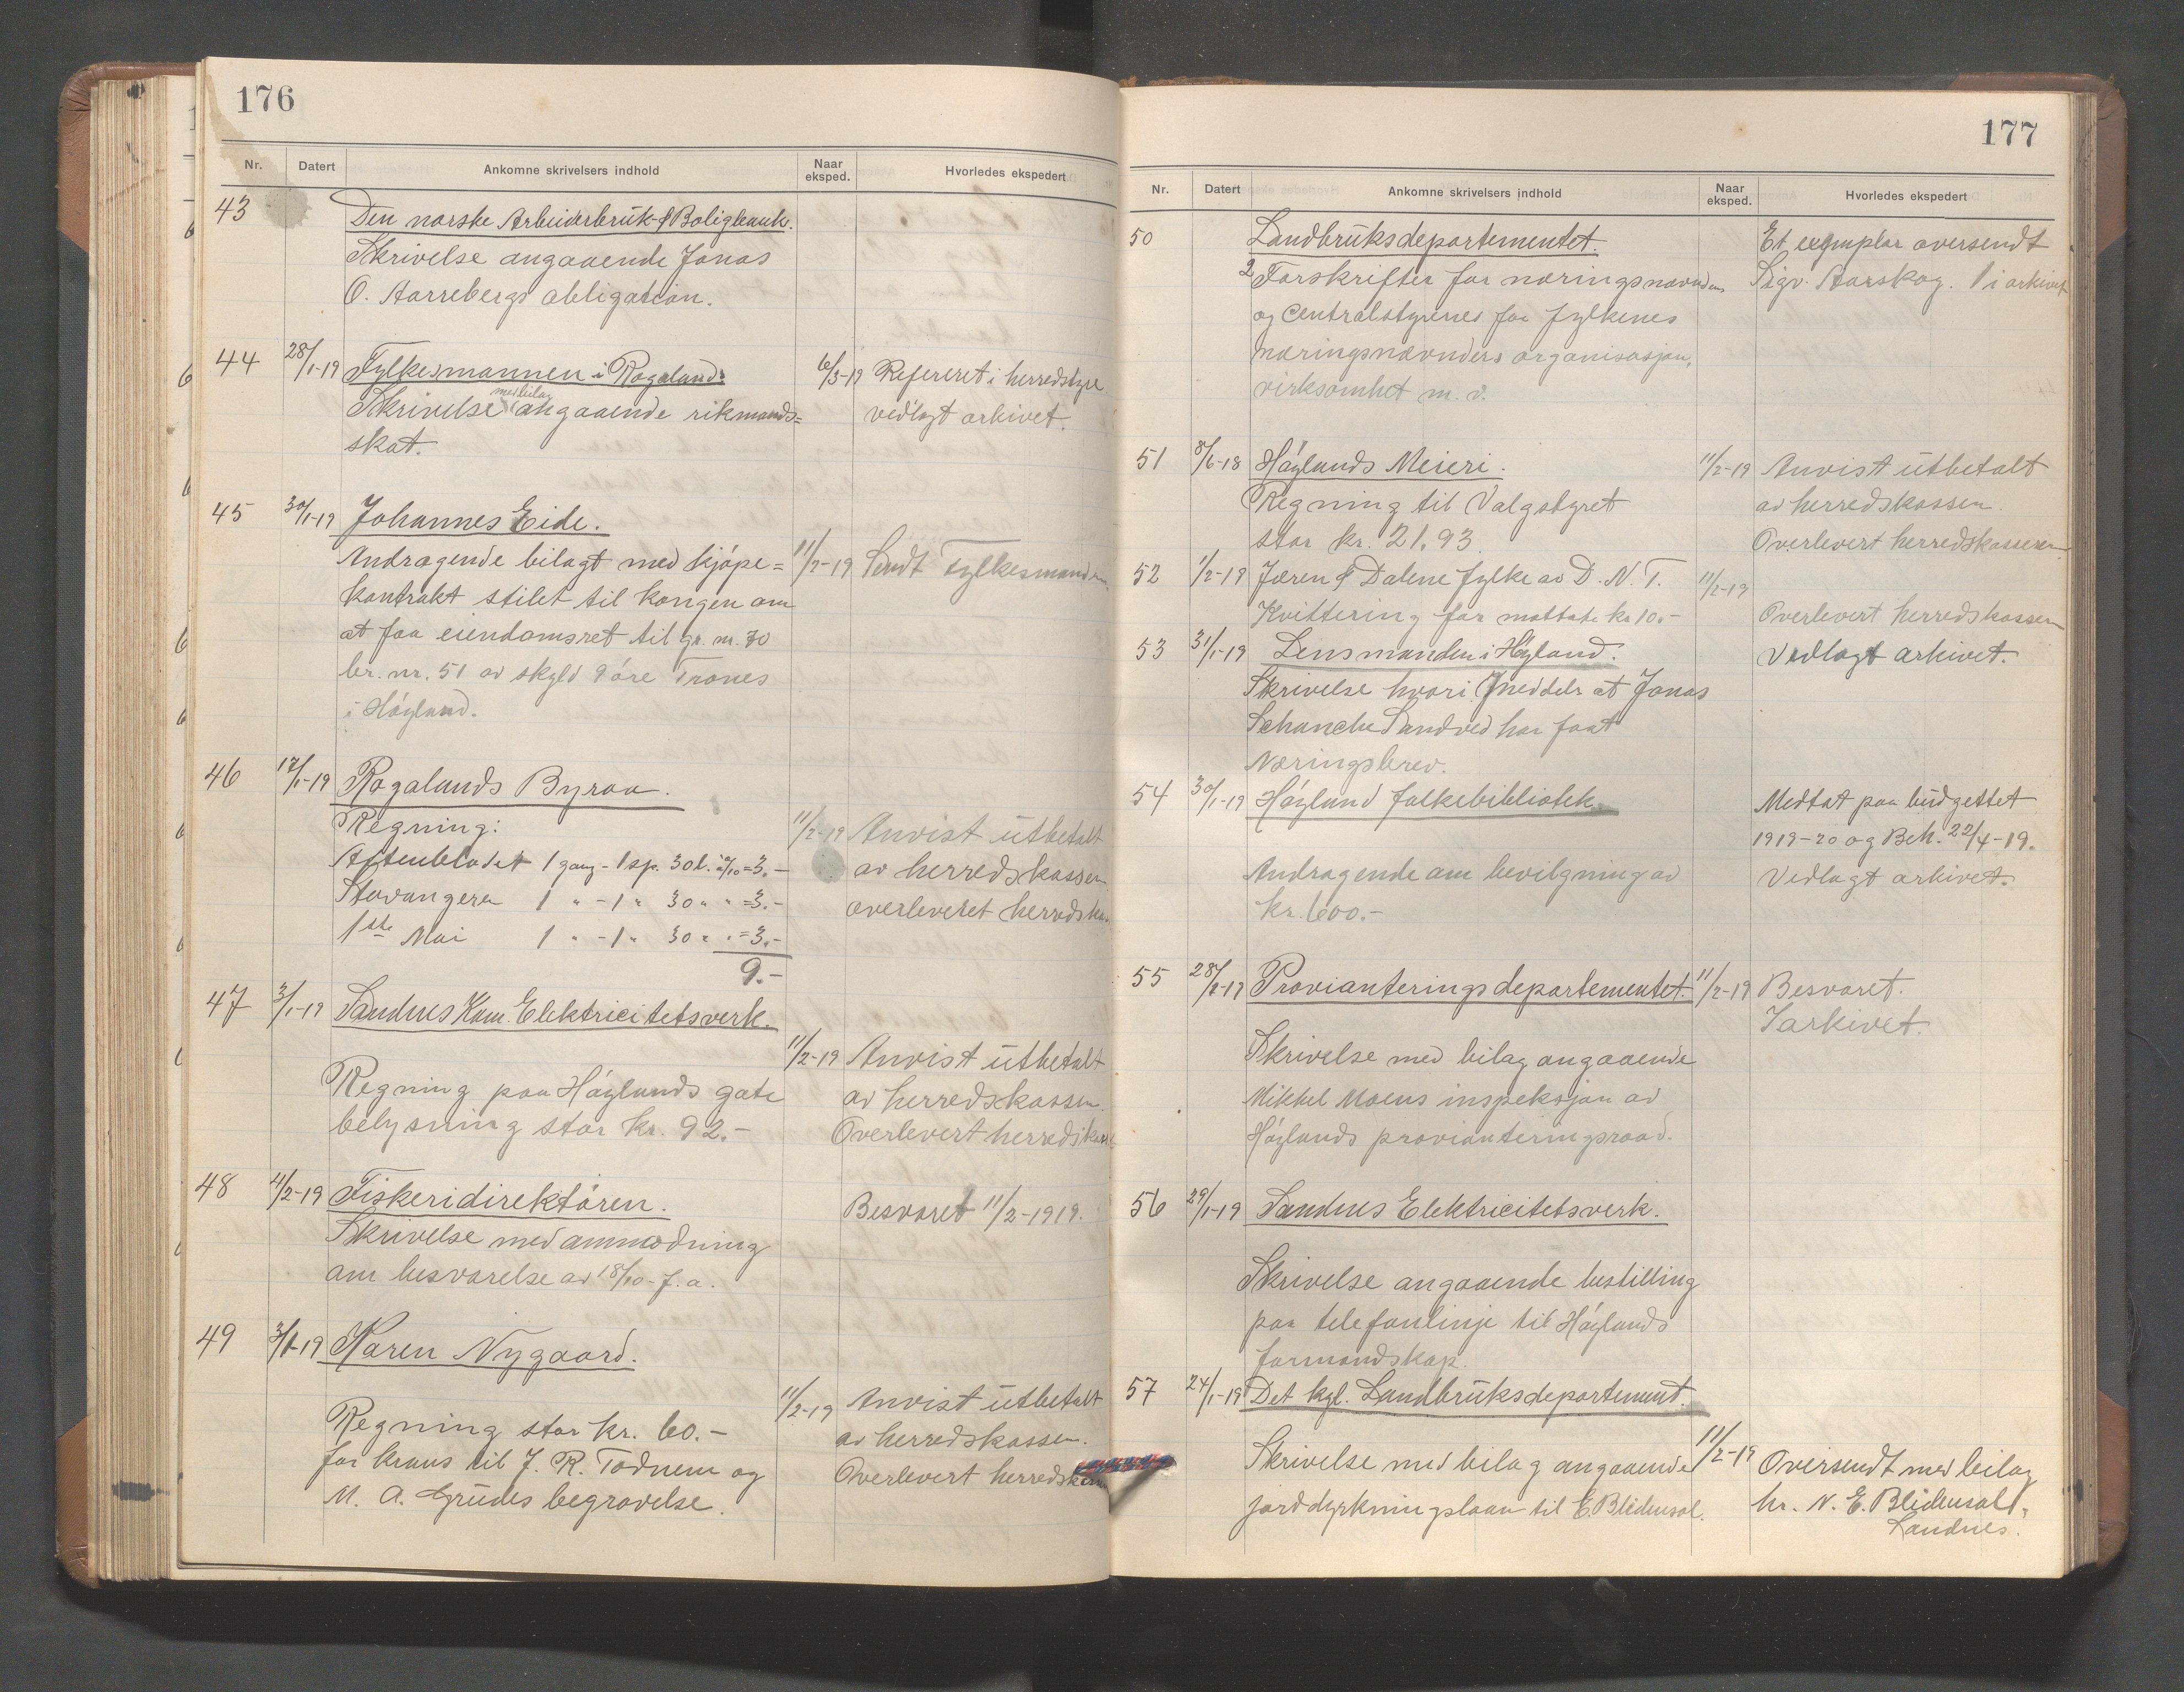 176
Nr. Datert Ankomne skrivelsers indhold Naar eksped. Hvorledes ekspedert
43 Den norske Arbeiderbruk- & Boligbank.
Skrivelse angaaende Jonas
O. Aarrebergs obligation.
44 28/1-19 Fylkesmannen i Rogaland: 6/3-19 Refereret i herredstyre
Skrivelse med bilag angaaende rikmands= vedlagt arkivet.
skat.
45 30/1-19 Johannes Eide.
Andragende bilagt med kjøpe= 11/2-19 Sendt Fylkesmanden
kontrakt stilet til kongen om
at faa eiendomsret til gr. nr. 70
br. nr. 51 av skyld 9 øre Trones
i Høyland.
46 17/1-19 Rogalands Byraa.
Regning: 11/2-19 Anvist utbetalt
Aftenbladet 1 gang - 1 sp. 30 l. à 9/10 = 3.- av herredskassen
Stavangeren 1 " - 1 " 30 " " = 3.- overleveret herredska
1ste Mai 1 " - 1 " 30 " " = 3.-
9.-
47 3/1-19 Sandnes Kom. Elektricitetsverk.
11/2-19 Anvist utbetalt
Regning paa Høylands gate av herredskassen.
belysning stor kr. 92.- Overlevert herredskas
48 4/2-19 Fiskeridirektøren. Besvaret 11/2-1919.
Skrivelse med anmodning
om besvarelse av 18/10 - f. a.
49 3/1-19 Karen Nygaard.
11/2-19 Anvist utbetalt
Regning stor kr. 60.- av herredskassen.
for krans til J. R. Todnem og Overlevert herredskas
M. A. Grudes begravelse.
177
Nr. Datert Ankomne skrivelsers indhold Naar eksped. Hvorledes ekspedert
50 Landbruksdepartementet. Et exemplar oversendt
2 Forskrifter for næringsnævndens Sigv. Aarskog. 1 i arkivet
og Centralstyrenes for fylkenes
næringsnævnders organisasjon,
virksomhet m. v.
51 8/6-18 Høylands Meieri. 11/2-19 Anvist utbetalt
Regning til Valgstyret av herredskassen.
stor kr. 21.93. Overlevert herredskasseren
52 1/2-19 Jæren & Dalene fylke av D. N. T. 11/2-19
Kvittering for mottate kr 10.- Overlevert herredskassen
53 31/1-19 Lensmanden i Høyland. Vedlagt arkivet.
Skrivelse hvori meddels at Jonas
Schanche Sandved har faat
Næringsbrev.
54 30/1-19 Høyland folkebibliotek. Medtat paa budgettet
1919-20 og Beh. 22/4-19.
Andragende om bevilgning av Vedlagt arkivet.
kr. 600.-
55 28/1-19 Provianteringsdepartementet. 11/2-19 Besvaret.
I arkivet.
Skrivelse med bilag angaaende
Mikkel Moens inspeksjon av
Høylands provianteringsraad.
56 29/1-19 Sandnes Elektricitetsverk.
Skrivelse angaaende bestilling
paa telefonlinje til Høylands
formandskap.
57 24/1-19 Det kgl. Landbruksdepartement.
Skrivelse med bilag angaaende 11/2-19 Oversendt med bilag
jorddyrkningslaan til E. Blidensol. hr. N. E. Blidensol,
Sandnes.